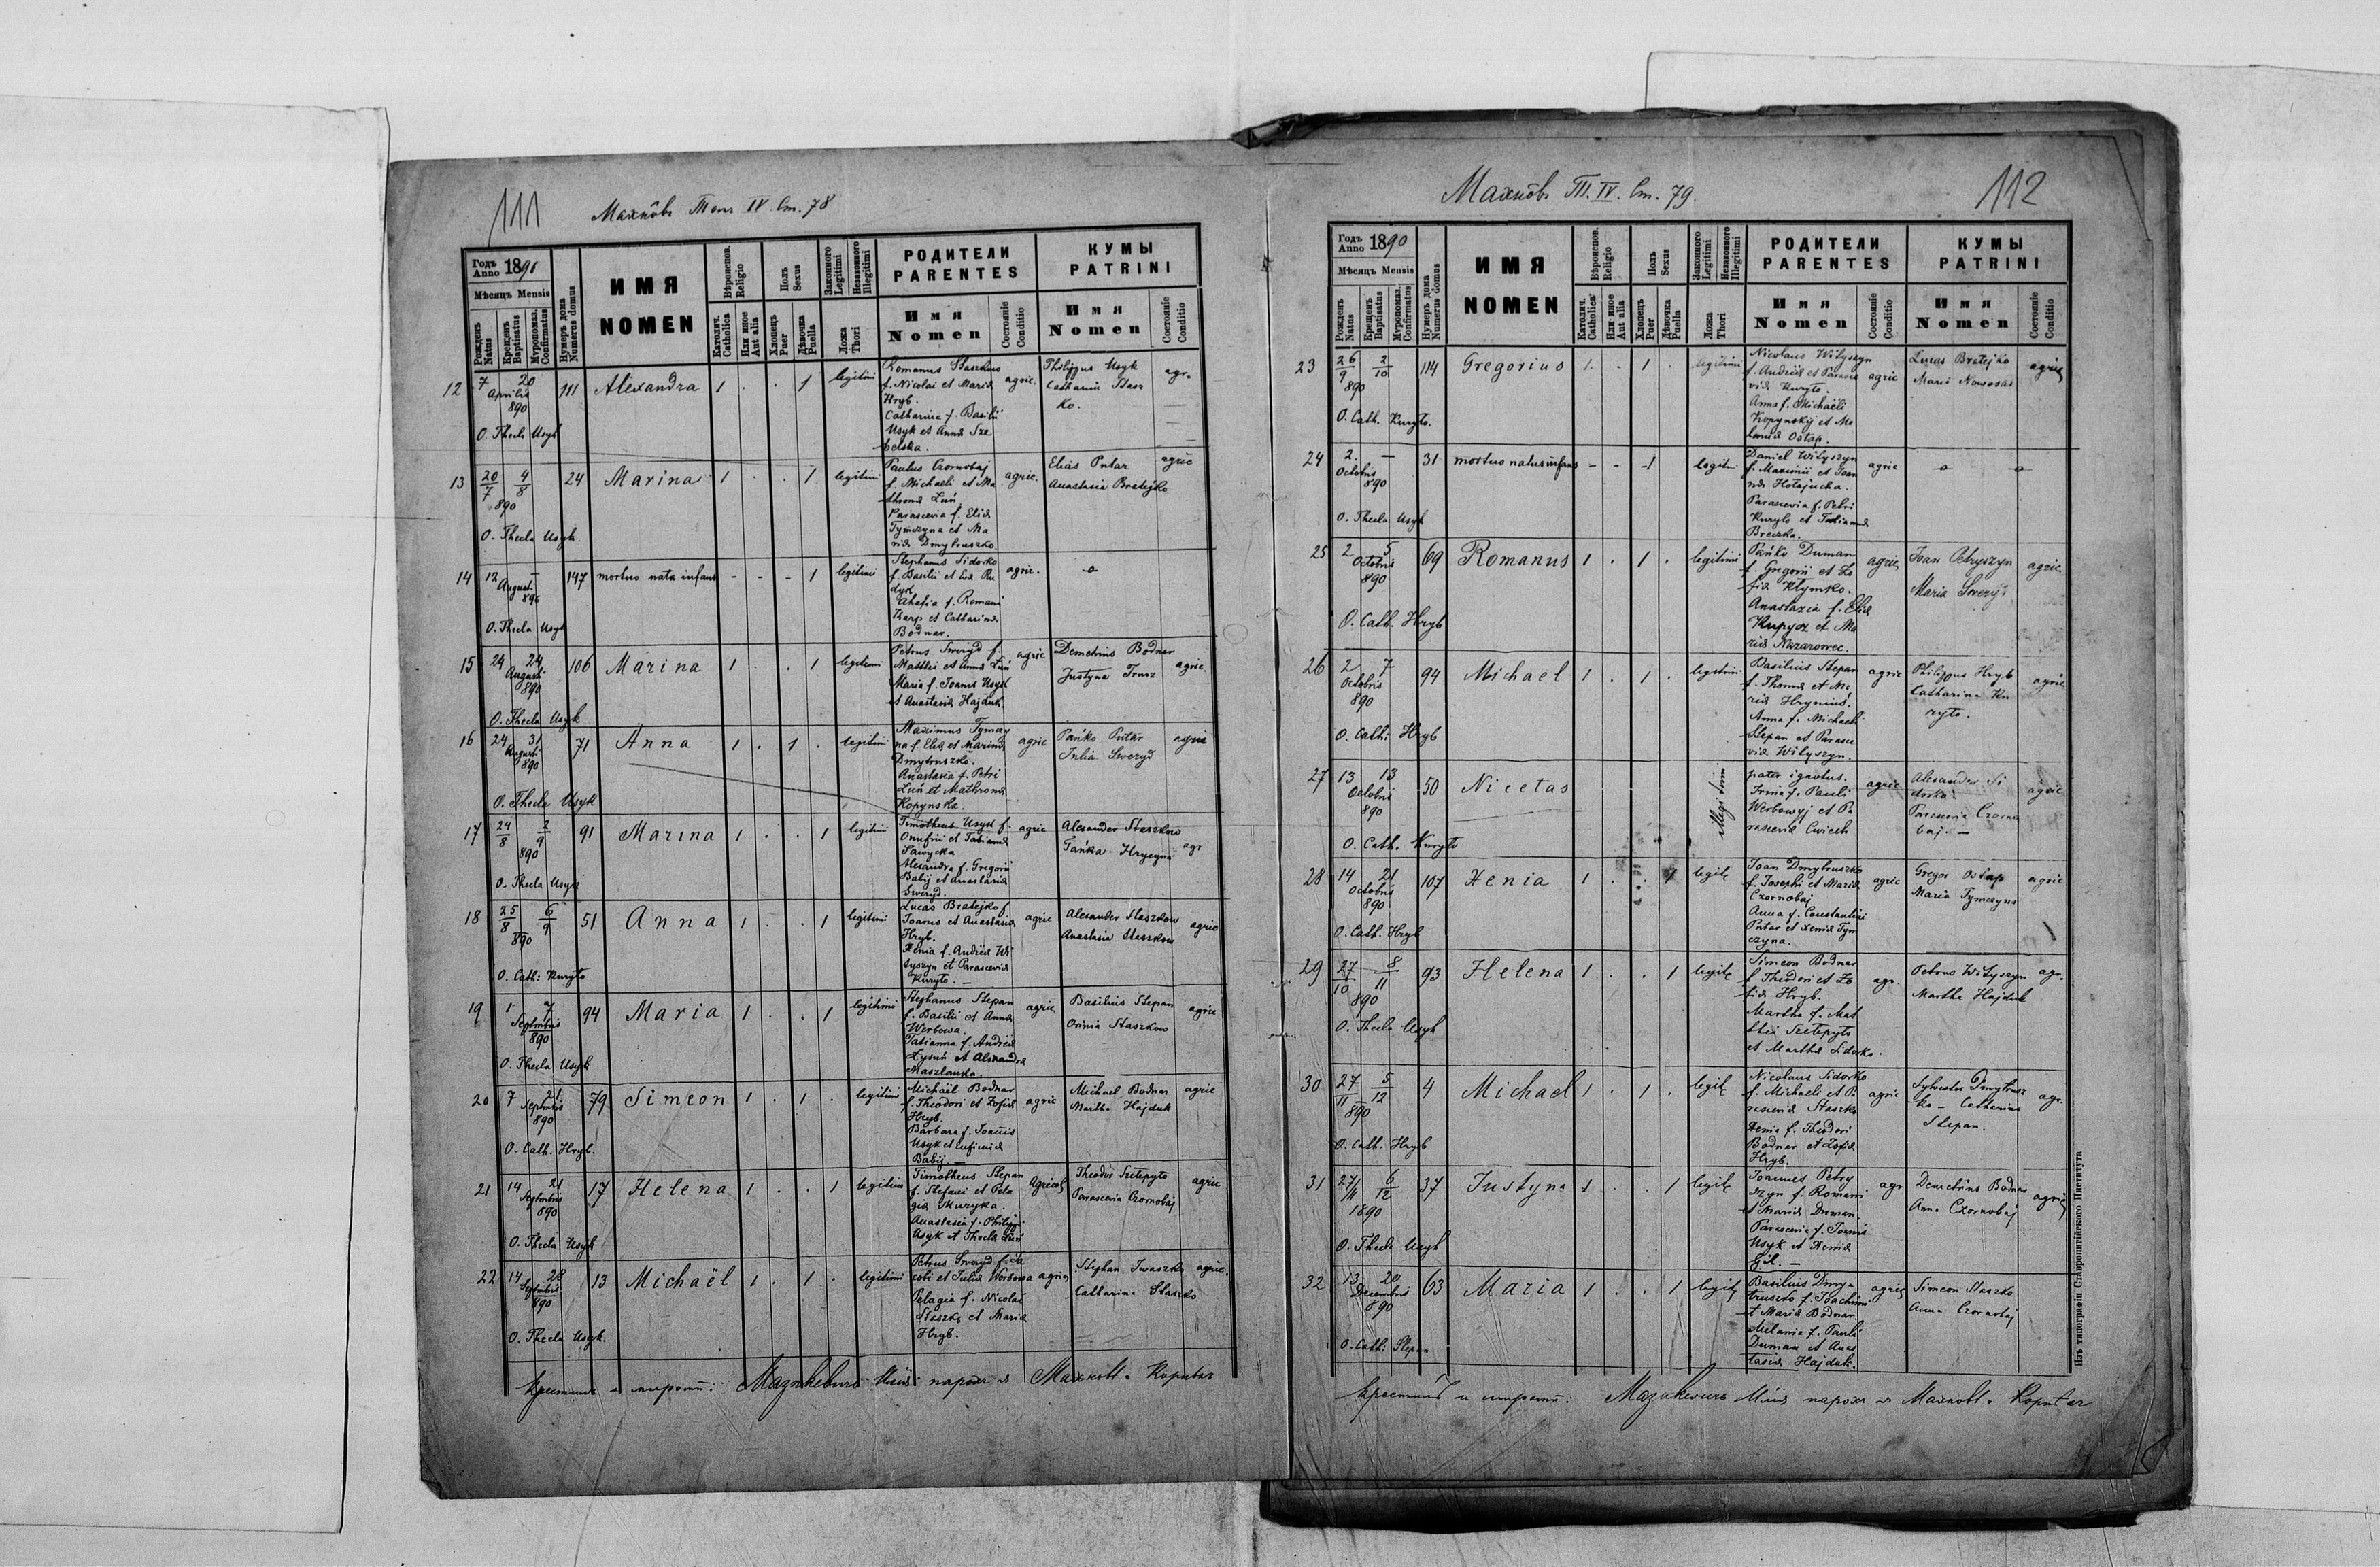 111
Махнôвъ Томъ IV. Ст. 78
Годъ Anno 1890
ИМЯ
NOMEN
Вѣроиспов. Religio
Полъ Sexus
Законного Legitimi
Незаконного Illegitimi
РОДИТЕЛИ
PARENTES
КУМЫ
PATRINI
Мѣсяцъ Mensis
Рожденъ Natus
Крещенъ Baptisatus
Мѵропомаз. Confirmatus
Нумеръ дома Numerus domus
Католич. Catholica
Или иное Aut alia
Хлопецъ Puer
Дѣвочка Puella
Ложа Thori
Имя Nomen
Состояніе Conditio
Имя Nomen
Состояніе Conditio
12 7 20 Aprilis 890 111 Alexandra 1 . . 1 legitimi
Romanus Staszkow
f. Nicolai et Mariæ agric.
Hryb.
Catharina f. Basilii
Usyk et Anna Sze
belska.
Philippus Usyk agr.
Catharina Stasz
ko.
O. Thecla Usyk
13 20/7 4/8 890 24 Marina 1 . . 1 legitimi
Paulus Czornobaj
f. Michaeli et Ma agric.
throna Luń
Parascevia f. Eliæ
Tymczyna et Ma
riæ Dmytruszko
Elias Putar agric
Anastasia Bratejko
O. Thecla Usyk
14 12 – Augusti 890 147 mortuo nata infans - - - 1 legitimi
Stephanus Sidorko
f. Basilii et Eva Ru agric.
dyk
Ahafia f. Romani
Karp et Catharina
Bodnar.
O. Thecla Usyk
15 24 24 Augusti 890 106 Marina 1 . . 1 legitimi
Petrus Sweryd f. agric
Matthei et Anna Luń
Maria f. Ioanis Usyk
et Anastasia Hajduk.
Demetrius Bodnar
Justyna Trusz agric.
O. Thecla Usyk
16 24 31 Augusti 890 71 Anna 1 . 1 . legitimi
Maximus Tymczy
na f. Eliæ et Marina agric
Dmytruszko.
Anastasia f. Petri
Luń et Mathrona
Kopynska.
Pańko Putar agric
Julia Sweryd
O. Thecla Usyk
17 24/8 2/9 890 91 Marina 1 . . 1 legitimi
Timotheus Usyk f. agric
Onufrii et Tatianna
Sawycka
Alexandra f. Gregorii
Babij et Anastasia
Sweryd.
Alexander Staszkow
Tańka Hrycyna agr
O. Thecla Usyk
18 25/8 6/9 890 51 Anna 1 . . 1 legitimi
Lucas Bratejko f.
Ioanis et Anastasia agric
Hryb.
Xenia f. Andreæ Wi
tyszyn et Parascevia
Kuryło. –
Alexander Staszkow agric
Anastasia Staszkow
O. Cath: Kuryło
19 1 7 Septembris 890 94 Maria 1 . . 1 legitimi
Stephanus Stepan agric
f. Basilii et Anna
Werbowa.
Tatianna f. Andreæ
Łysuń et Alexandra
Maszlanka.
Basilius Stepan agric
Orinia Staszkow
O. Thecla Usyk
20 7 21 Septembris 890 79 Simeon 1 . 1 . legitimi
Michaël Bodnar
f. Theodori et Zofia agric
Hryb.
Barbara f. Joannis
Usyk et Eufimia
Babij. –
Michael Bodnar agric
Martha Hajduk
O. Cath. Hryb.
21 14 21 Septembris 890 17 Helena 1 . . 1 legitimi
Timotheus Stepan agricol
f. Stefani et Pela
gia Muzyka.
Anastasia f. Philippi
Usyk et Thecla Luń
Theodor Szetepyto agric
Parascevia Czornobaj
O. Thecla Usyk
22 14 28 Septembris 890 13 Michaël 1 . 1 . legitimi
Petrus Sweryd f. Ja
cobi et Julia Werbowa agric
Pelagia f. Nicolai
Staszko et Maria
Hryb.
Stephan Iwaszko agric.
Catharina Staszko
O. Thecla Usyk.
Мазикевичъ парохъ
112
Махнôвъ Т. IV. Ст. 79.
Годъ Anno 1890
ИМЯ
NOMEN
Вѣроиспов. Religio
Полъ Sexus
Законного Legitimi
Незаконного Illegitimi
РОДИТЕЛИ
PARENTES
КУМЫ
PATRINI
Мѣсяцъ Mensis
Рожденъ Natus
Крещенъ Baptisatus
Мѵропомаз. Confirmatus
Нумеръ дома Numerus domus
Католич. Catholica
Или иное Aut alia
Хлопецъ Puer
Дѣвочка Puella
Ложа Thori
Имя Nomen
Состояніе Conditio
Имя Nomen
Состояніе Conditio
23 26/9 2/10 890 114 Gregorius 1 . 1 . legitimi
Nicolaus Wityszyn
f. Andreæ et Parasce agric
via Kuryło.
Anna f. Michaëli
Kopynskij et Me
lania Ostap.
Lucas Bratejko agric
Maria Nowosad
O. Cath. Kuryło.
24 2. – Octobris 890 31 mortuo natus infans - - 1 legitimi
Daniel Wityszyn
f. Maximi et Ioan agric
na Hołajucha.
Parascevia f. Petri
Kuryło et Tatianna
Breczka.
O. Thecla Usyk
25 2 5 Octobris 890 69 Romanus 1 . 1 . legitimi
Pańko Duman agric
f. Gregorii et Zo
fia Kłymko.
Anastazia f. Eliæ
Kupycz et Ma
ria Nazarowec.
Ioan Petryszyn agric.
Maria Sweryd
O. Cath. Hryb
26 2 7 Octobris 890 94 Michael 1 . 1 . legitimi
Basilius Stepan agric
f. Thoma et Ma
ria Hryniuś.
Anna f. Michaeli
Stepan et Parasce
via Wityszyn.
Philippus Hryb agric
Catharina Ku
ryło.
O. Cath: Hryb
27 13 13 Octobris 890 50 Nicetas illegitimi
pater ignotus.
Irina f. Pauli agric
Werbowyj et Pa
rascevia Cwicch
Alexander Si agric
dorko.
Parascevia Czorno
baj. –
O. Cath. Kuryło
28 14 21 Octobris 890 107 Xenia 1 . . 1 legit
Ioan Dmytruszko
f. Josephi et Maria agric
Czornobaj
Anna f. Constantini
Putar et Xenia Tym
czyna.
Gregor Ostap agric
Maria Tymczyna
O. Cath. Hryb
29 27/10 8/11 890 93 Helena 1 . . 1 legit
Simeon Bodnar
f. Theodori et Zo agr.
fia Hryb.
Martha f. Mat
thei Szetepyto
et Martha Sidorko.
Petrus Wityszyn agr.
Martha Hajduk
O. Thecla Usyk
30 27/11 5/12 890 4 Michael 1 . 1 . legit
Nicolaus Sidorko
f. Michaeli et Pa agric
rascevia Staszko
Xenia f. Theodori
Bodnar et Zofia
Hryb.
Sylvester Dmytrusz agr.
ko – Catharina
Stepan.
O. Cath. Hryb
31 27/11 6/12 1890 37 Justyna 1 . . 1 legit
Joannes Petry agr
szyn f. Romani
et Maria Duman
Parascevia f. Joannis
Usyk et Xenia
Gil. –
Demetrius Bodnar agric
Anna Czornobaj
O. Thecla Usyk
32 13 20 Decembris 890 63 Maria 1 . . 1 legit
Basilius Dmy- agric
truszko f. Joachimi
et Maria Bodnar
Melania f. Pauli
Duman et Anas
tasia Hajduk.
Simeon Staszko
Anna Czornobaj
O. Cath: Stepan
Мазикевичъ парохъ
Изъ типографіи Ставропигійского Института